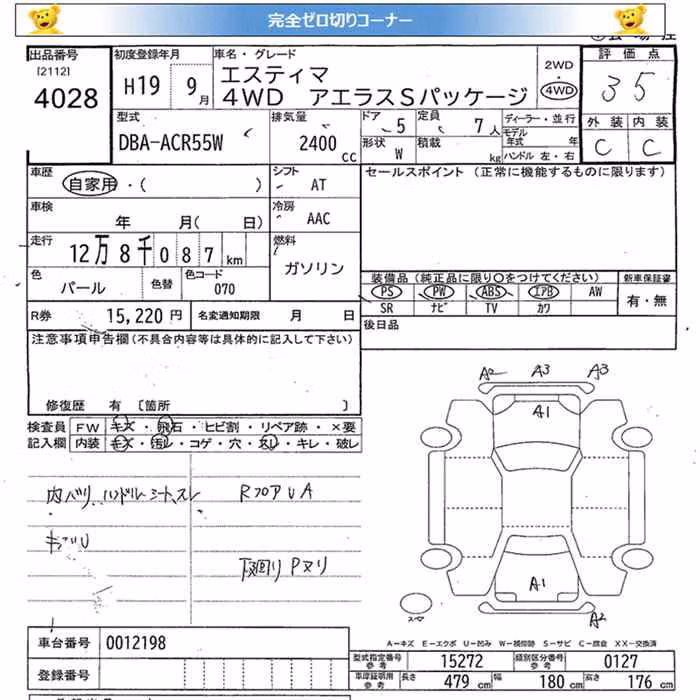 完全ゼロ切りコーナー
出品番号 初度登録年月 車名・グレード 2WD 評価点
[2112]
4028 H19 9月 エスティマ 4WD 35
4WD アエラスSパッケージ
型式 排気量 ドア 定員 ディーラー・並行 外装 内装
DBA-ACR55W 2400cc 5 7人 モデル年式 年 C C
形状 W 積載 kg ハンドル 左・右
車歴 シフト セールスポイント (正常に機能するものに限ります)
自家用・( ) AT
車検 冷房
年 月(日) AAC
走行 燃料
12万8千087km ガソリン
色 色替 色コード 装備品(純正品に限り〇をつけてください) 新車保証書
パール 070 PS PW ABS エアB AW 有・無
SR ナビ TV カワ
R券 15,220円 名変通知期限 月 日 後日品
注意事項申告欄(不具合内容等は具体的に記入して下さい)
修復歴 有 〔箇所 〕
検査員 FW キズ・飛石・ヒビ割・リペア跡・×要
記入欄 内装 キズ・汚レ・コゲ・穴・スレ・キレ・破レ
内バリ、ハンドル、シート、スレ RフロアUA
下回りPヌリ
A2 A3 A3
A1
A1
スペア A2
A-キズ E-エクボ U-凹み W-補修跡 S-サビ C-腐食 XX-交換済
車台番号 0012198
型式指定番号参考 15272 類別区分番号参考 0127
登録番号
車庫証明用参考 長さ 479cm 幅 180cm 高さ 176cm